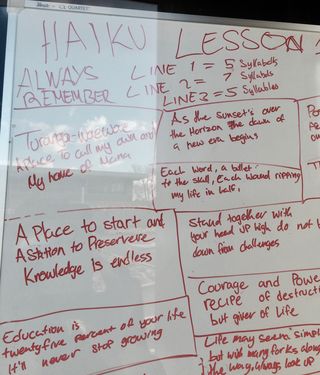 HAIKU LESSON
ALWAYS
REMEMBER
LINE 1 = 5 Syllabells
LINE 2 = 7 Syllabls
LINE 3 = 5 Syllables
A place to call my own and
My home of Mana
As the Sunset's over
the Horizon The dawn of
a new era begins
Each Word, a bullet
to the skull, Each Wound ripping
my life in half.
A Place to start and
A Stattion to Preservere
Knowledge is endless
Stand together with
your head up high do not b
down from challenges
Courage and Powe
recipe of destruct
but giver of Life
Education is
twentyfive percent of your life
it'll never stop growing
Life may seem simpl
but with many forks along
the way, Always look up